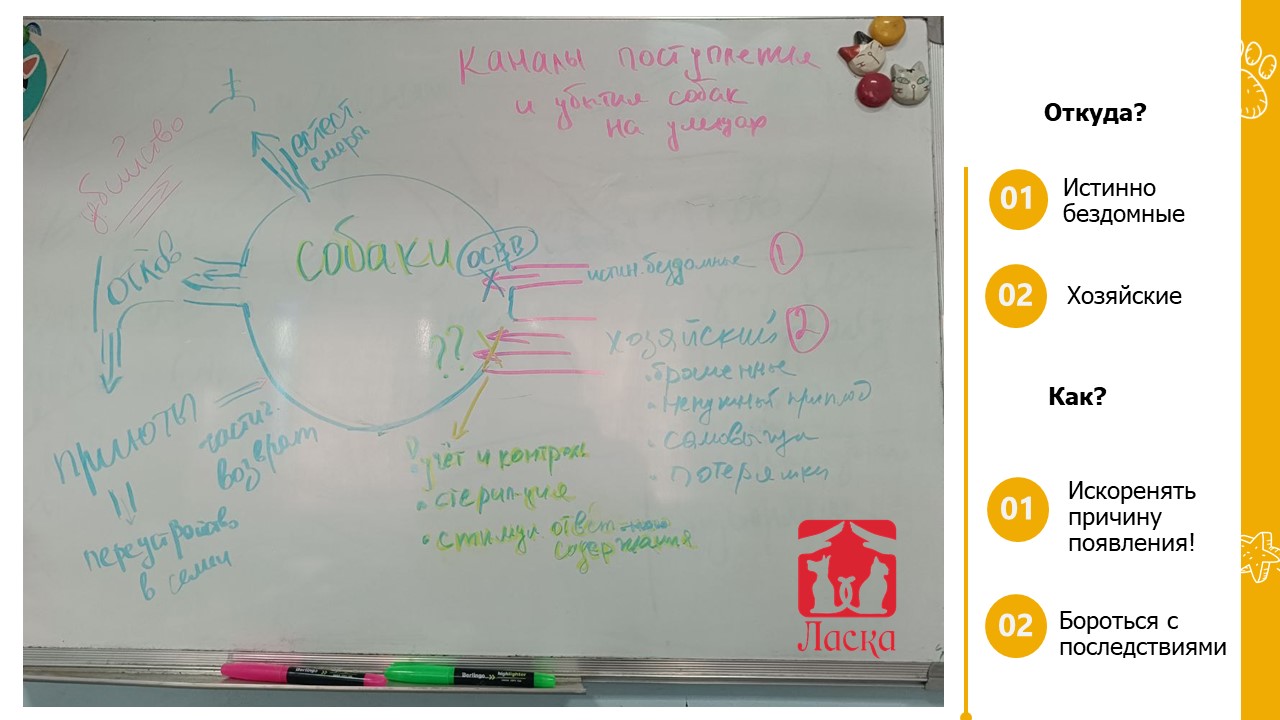 Каналы поступления
и убытия собак
на улицах
убийство
?
естест.
смерть
отлов
собаки
ОСВВ
истин. бездомные 1
??
хозяйский 2
• брошенные
• ненужный приплод
• самовыгул
• потеряшки
приюты
частич.
возврат
переустройство
в семьи
• учёт и контроль
• стерил-ция
• стимул. ответ-ного
содержания
Ласка
Berlingo
Berlingo highlighter
Откуда?
01 Истинно
бездомные
02 Хозяйские
Как?
01 Искоренять
причину
появления!
02 Бороться с
последствиями